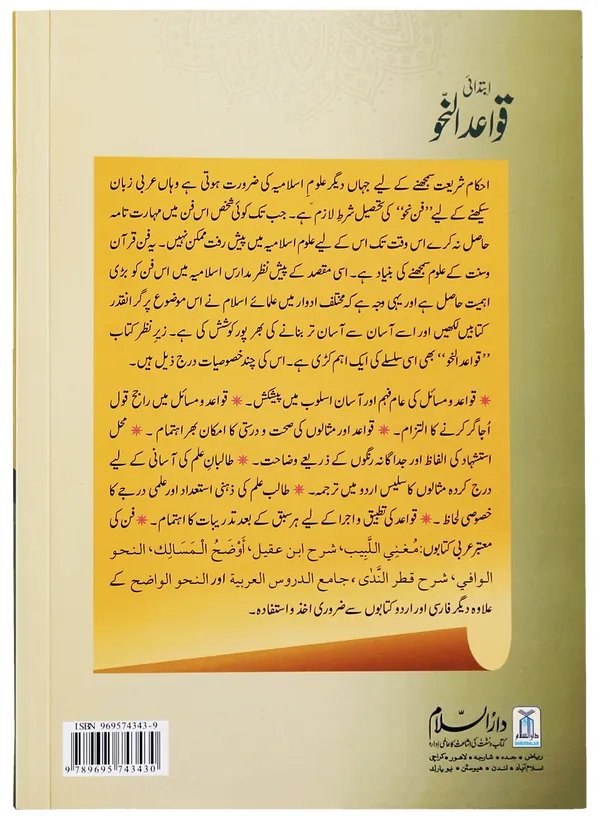 ابتدائی
قواعد النّحو
احکام شریعت سمجھنے کے لیے جہاں دیگر علومِ اسلامیہ کی ضرورت ہوتی ہے وہاں عربی زبان
سیکھنے کے لیے ’’فن نحو‘‘ کی تحصیل شرطِ لازم ہے۔ جب تک کوئی شخص اس فن میں مہارت تامہ
حاصل نہ کرے اس وقت تک اس کے لیے علوم اسلامیہ میں پیش رفت ممکن نہیں۔ یہ فن قرآن
وسنت کے علوم سمجھنے کی بنیاد ہے۔ اسی مقصد کے پیش نظر مدارس اسلامیہ میں اس فن کو بڑی
اہمیت حاصل ہے اور یہی وجہ ہے کہ مختلف ادوار میں علمائے اسلام نے اس موضوع پر گرانقدر
کتابیں لکھیں اور اسے آسان سے آسان تر بنانے کی بھر پور کوشش کی ہے۔ زیر نظر کتاب
’’قواعد النحو‘‘ بھی اسی سلسلے کی ایک اہم کڑی ہے۔ اس کی چند خصوصیات درج ذیل ہیں۔
✷ قواعد و مسائل کی عام فہم اور آسان اسلوب میں پیشکش۔ ✷ قواعد و مسائل میں راجح قول
اُجاگر کرنے کا التزام۔ ✷ قواعد اور مثالوں کی صحت و درستی کا امکان بھر اہتمام۔ ✷ محل
استشہاد کی الفاظ اور جداگانہ رنگوں کے ذریعے وضاحت۔ ✷ طالبانِ علم کی آسانی کے لیے
درج کردہ مثالوں کا سلیس اردو میں ترجمہ۔ ✷ طالب علم کی ذہنی استعداد اور علمی درجے کا
خصوصی لحاظ۔ ✷ قواعد کی تطبیق و اجرا کے لیے ہر سبق کے بعد تدریبات کا اہتمام۔ ✷ فن کی
معتبر عربی کتابوں: مُغني اللَّبيب، شرح ابن عقيل، أَوضَحُ الْمَسَالِك، النحو
الوافي، شرح قطر النَّدٰى، جامع الدروس العربية اور النحو الواضح کے
علاوہ دیگر فارسی اور اردو کتابوں سے ضروری اخذ و استفادہ۔
دارُالسلام
کتاب وسنت کی اشاعت کا عالمی ادارہ
ریاض • جدہ • شارجہ • لاہور • کراچی
اسلام آباد • لندن • ہیوسٹن • نیو یارک
دارالسلام
ISBN 969574343-9
9 789695 743430